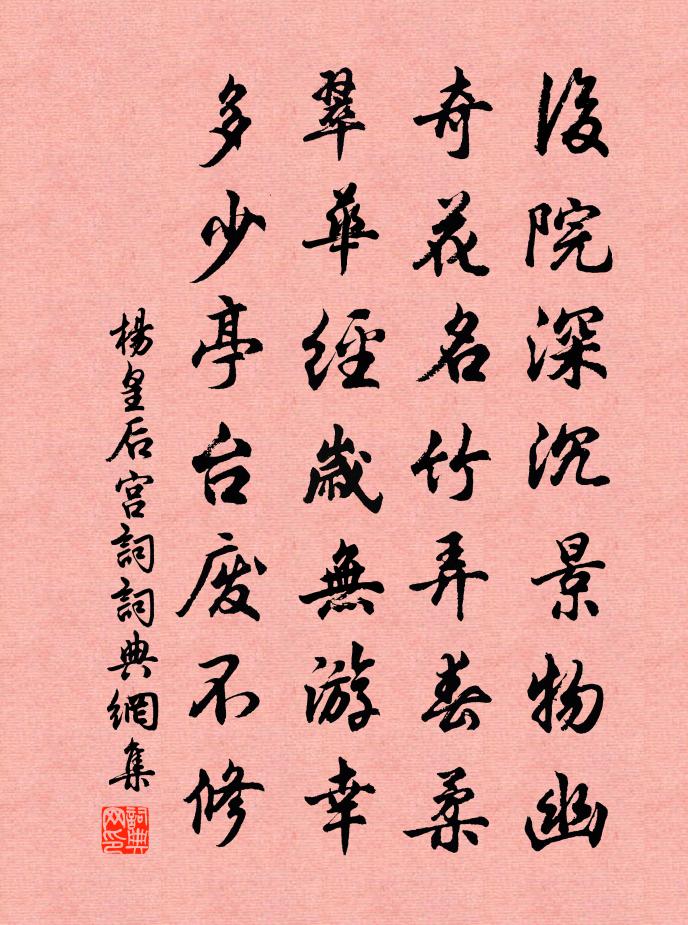 後院深沉景物幽
奇花名竹弄春柔
翠華經歲無游幸
多少亭台廢不修
楊皇后宮詞詞典網集
詞典网印